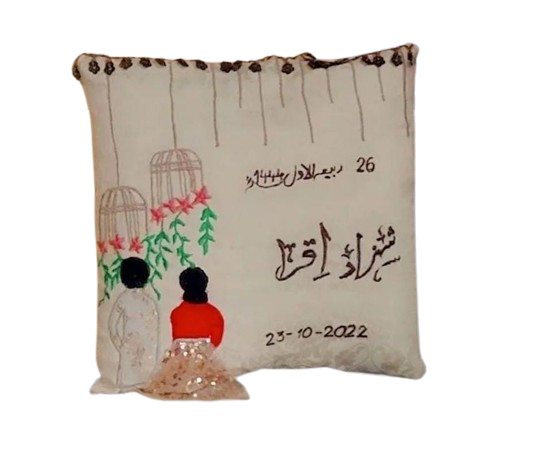 26 ربیع الاول ۱۴۴۴ھ
شہزاد اقرا
23-10-2022